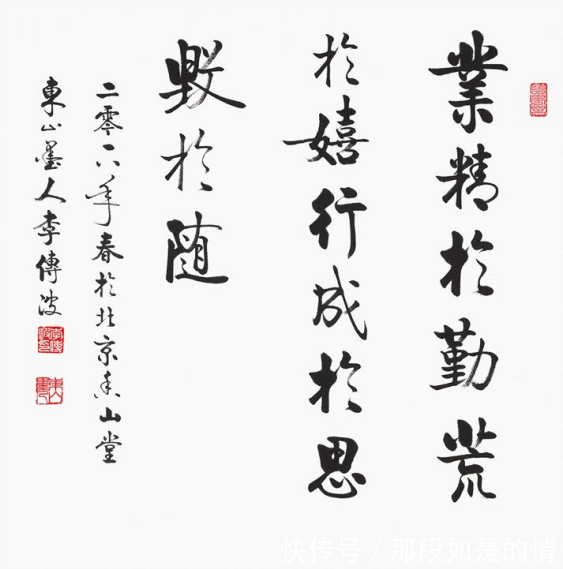 業精於勤荒
於嬉行成於思
毀於随
二零一六年春於北京香山堂
東山墨人李傳波
快传号 / 那段如是的情